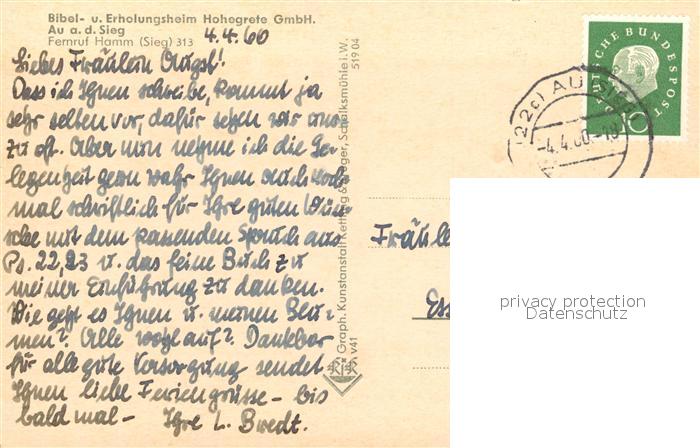 Bibel- u. Erholungsheim Hohegrete GmbH.
Au a. d. Sieg
Fernruf Hamm (Sieg) 313
4.4.60
Liebes Fräulein
Dass ich Ihnen schreibe, kommt ja
sehr selten vor, dafür sehen wir uns
zu oft. Aber nun nehme ich die Ge-
legenheit gern wahr Ihnen auch noch
mal schriftlich für Ihre guten Wün-
sche mit dem passenden Spruch aus
Ps. 22,23 u. das feine Buch zu
meiner Einführung zu danken.
Wie geht es Ihnen u. meinen Blu-
men? Alle wohlauf? Dankbar
für alle gute Versorgung sendet
Ihnen liebe Feriengrüsse - bis
bald mal - Ihre L. Bredt.
Graph. Kunstanstalt Kettling & Krüger, Schalksmühle i. W.
519 04
V41
KrüK
DEUTSCHE BUNDESPOST
10
(22c) AU (SIEG)
-4.4.60.-18
Fräule
Ess
privacy protection
Datenschutz